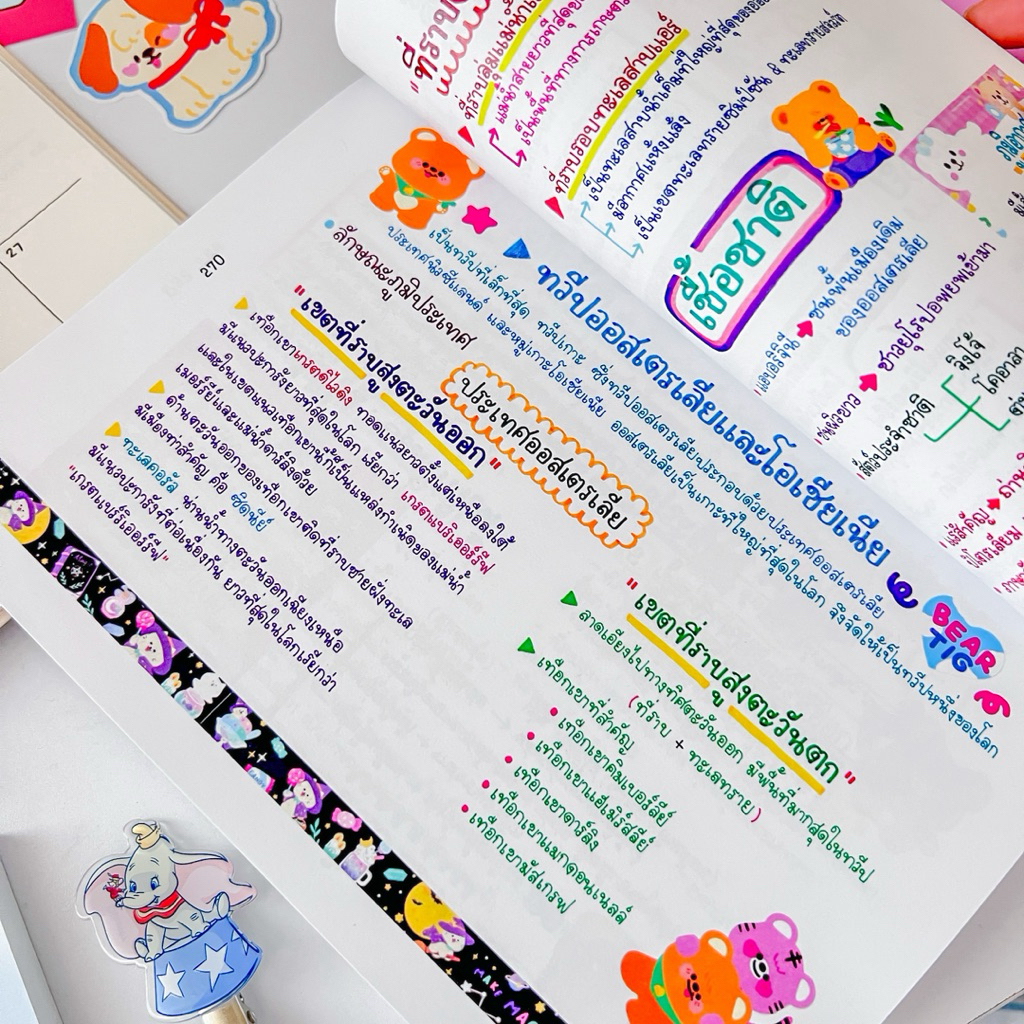 27
270
ทวีปออสเตรเลียและโอเชียเนีย
เป็นทวีปที่เล็กที่สุด ทวีปเกาะ ซึ่งทวีปออสเตรเลียประกอบด้วยประเทศออสเตรเลีย
ประเทศนิวซีแลนด์ และหมู่เกาะโอเชียเนีย ออสเตรเลียเป็นเกาะที่ใหญ่ที่สุดในโลก จึงจัดให้เป็นทวีปหนึ่งของโลก
BEAR
TIG
ลักษณะภูมิประเทศ
ประเทศออสเตรเลีย
"เขตที่ราบสูงตะวันออก"
เทือกเขาเกรตดิไวดิง ทอดแนวยาวตั้งแต่เหนือลงใต้
มีแนวปะการังยาวที่สุดในโลก เรียกว่า เกรตแบริเออร์รีฟ
และในเขตแนวเทือกเขานี้ก็เป็นแหล่งกำเนิดของแม่น้ำ
เมอร์รีย์และแม่น้ำดาร์ลิงด้วย
ด้านตะวันออกของเทือกเขาติดที่ราบชายฝั่งทะเล
มีเมืองท่าสำคัญ คือ ซิดนีย์
ทะเลคอรัล น่านน้ำทางตะวันออกเฉียงเหนือ
มีแนวปะการังที่ต่อเนื่องกัน ยาวที่สุดในโลกเรียกว่า
"เกรตแบร์ริเออร์รีฟ"
"เขตที่ราบสูงตะวันตก"
ลาดเอียงไปทางทิศตะวันออก มีพื้นที่มากสุดในทวีป
(ที่ราบ + ทะเลทราย)
เทือกเขาที่สำคัญ
เทือกเขาคิมเบอร์ลีย์
เทือกเขาแฮเมิร์สลีย์
เทือกเขาดาร์ลิง
เทือกเขาแมกดอนเนลล์
เทือกเขามัสเกรฟ
"ที่ราบ
ที่ราบลุ่มแม่น้ำ
แม่น้ำสายยาวที่สุด
เป็นพื้นที่ทางการเกษตร
ที่ราบรอบทะเลสาบแอร์
เป็นทะเลสาบน้ำเค็มที่ใหญ่ที่สุดของ
มีอากาศแห้งแล้ง
เป็นเขตทะเลทรายซิมป์ซัน & ทะเลทราย
เชื้อชาติ
แอบอริจิน
ชนพื้นเมืองเดิม
ของออสเตรเลีย
ชนผิวขาว
ชาวยุโรปอพยพเข้ามา
สัตว์ประจำชาติ
จิงโจ้
โคอาลา
แร่สำคัญ
ถ่านหิน
ปิโตรเลียม
MAKE